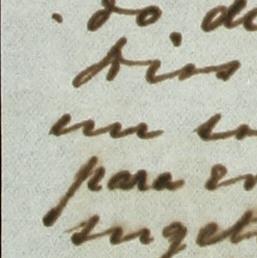 do, de
Dios
un so
para en
suget